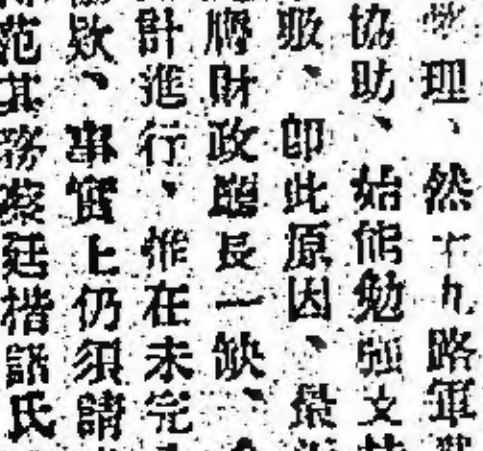 理、然十九路軍
協助、始能勉強支
敗、卽此原因、最
膺財政廳長一缺、
計進行、惟在未完
欵、事實上仍須請
范其務蔡廷楷諸氏